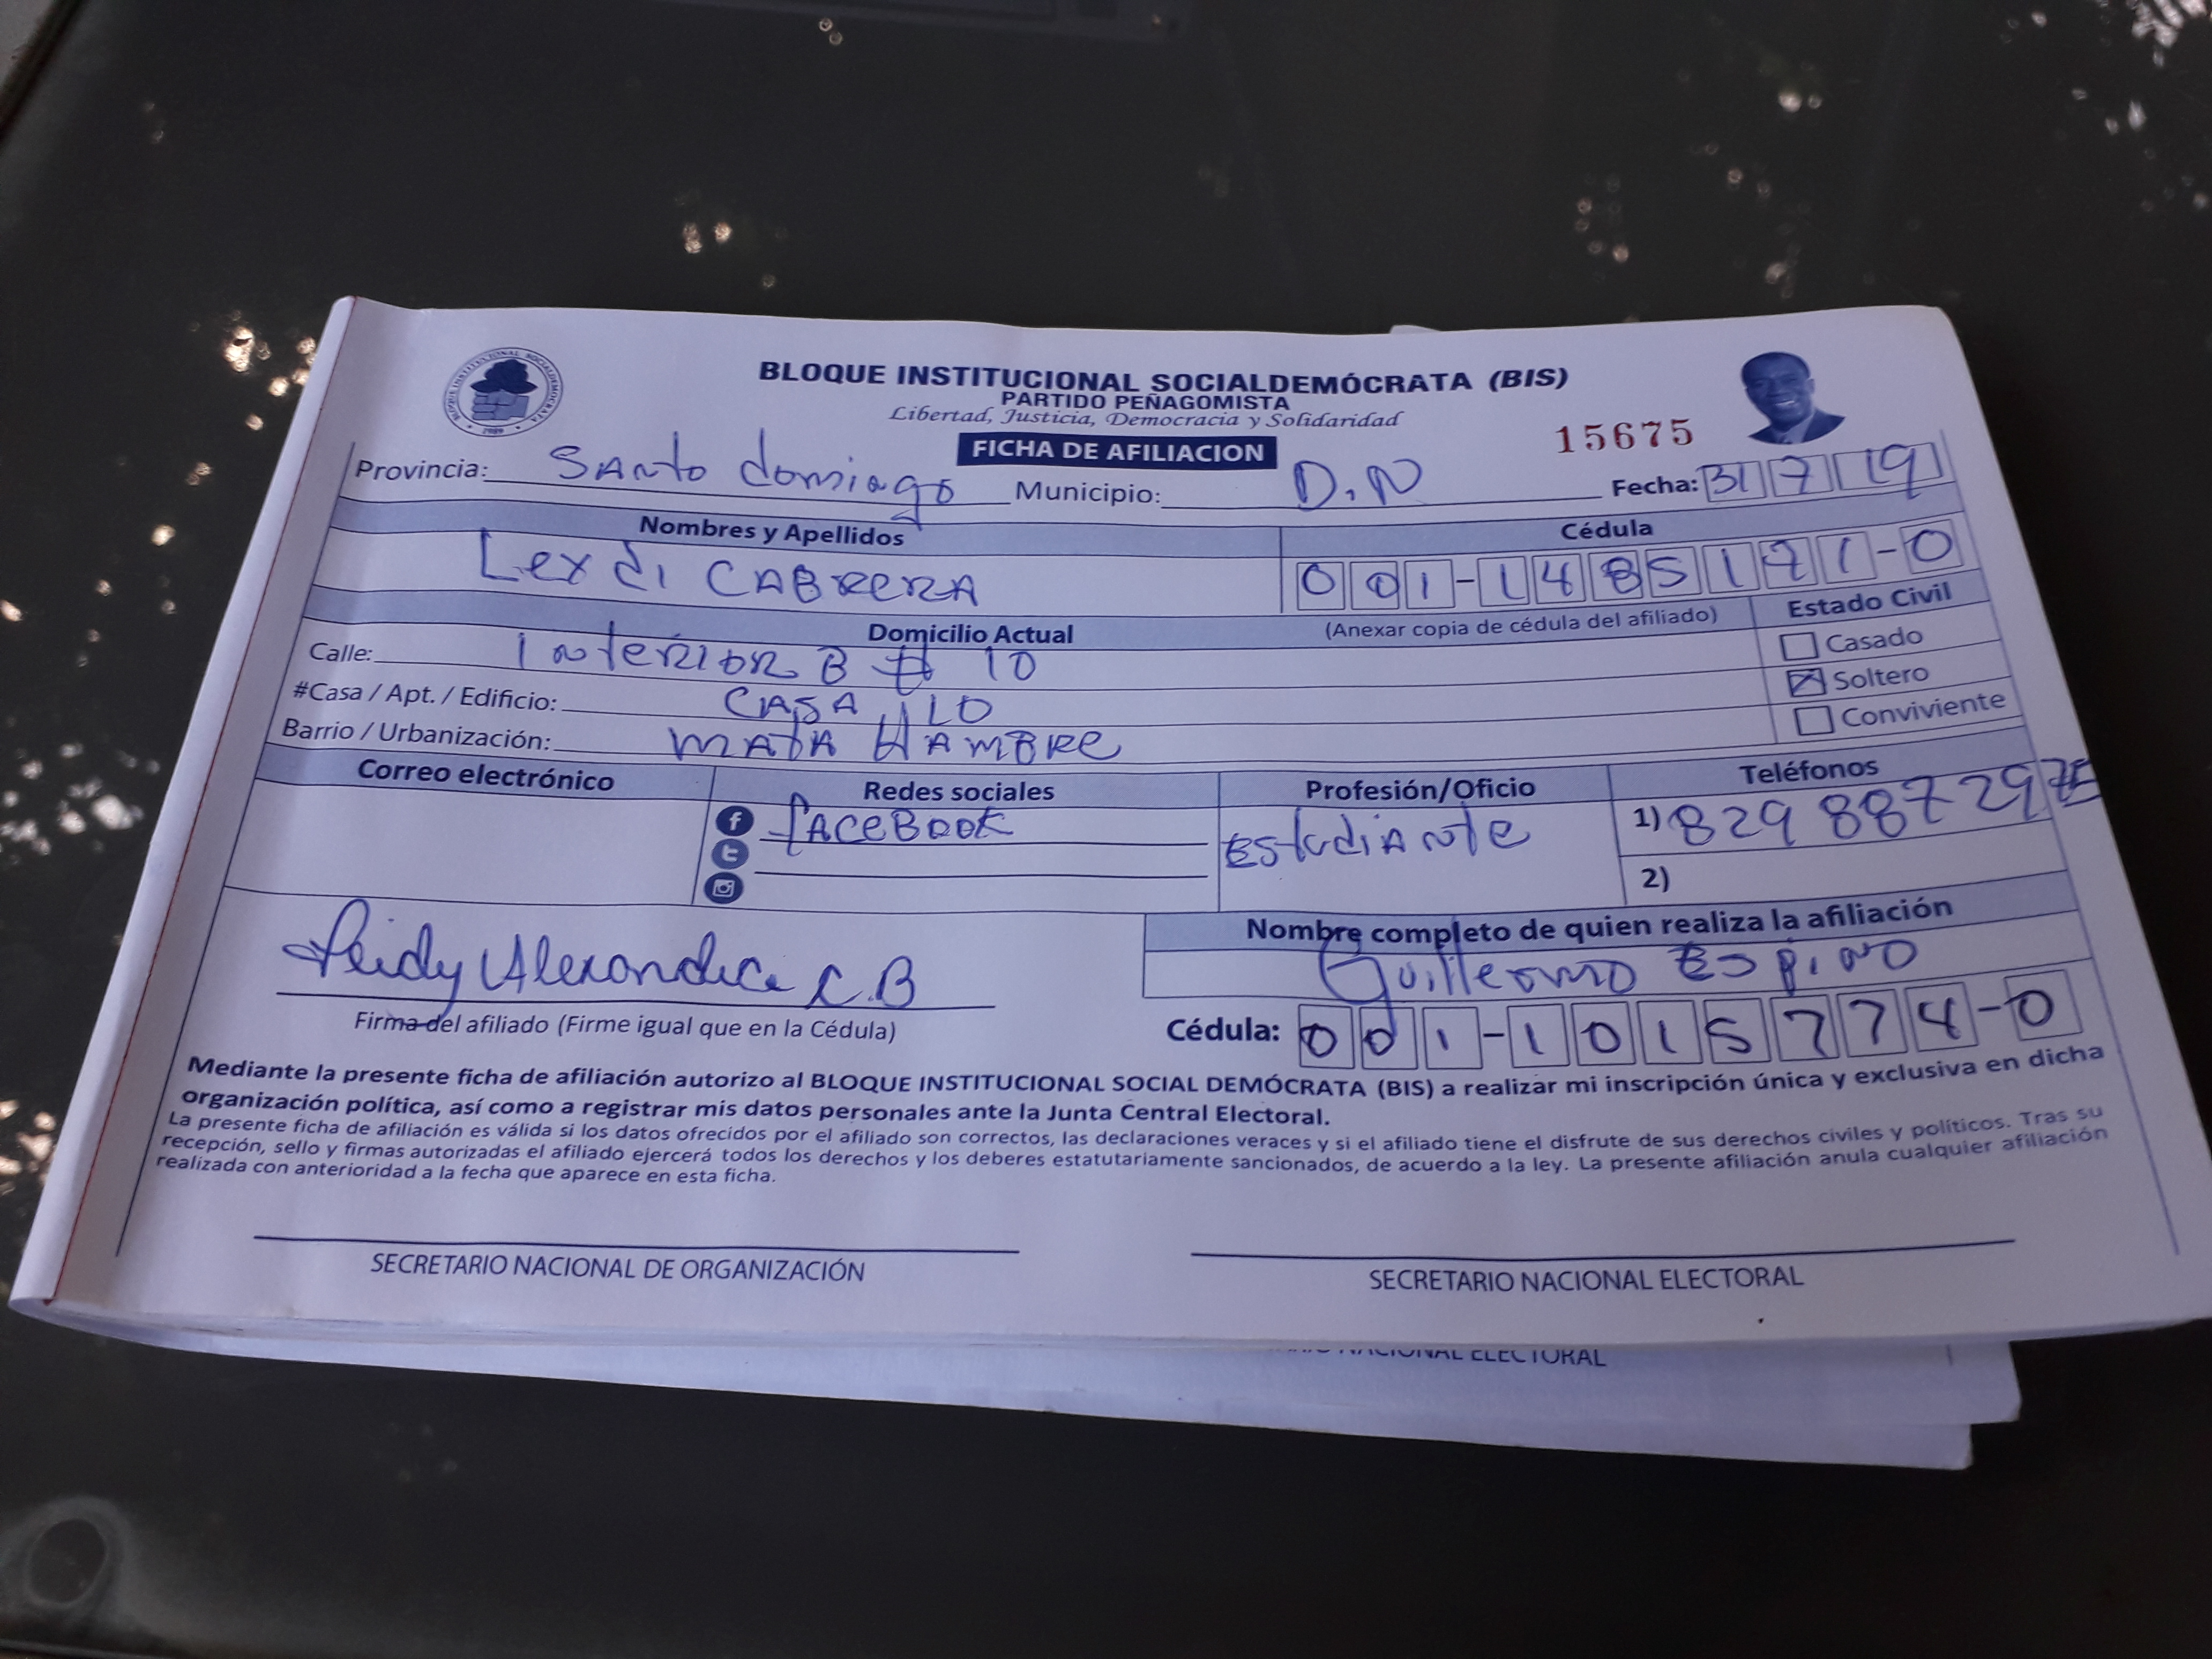 BLOQUE INSTITUCIONAL SOCIALDEMÓCRATA (BIS)
PARTIDO PEÑAGOMISTA
Libertad, Justicia, Democracia y Solidaridad
BLOQUE INSTITUCIONAL SOCIALDEMOCRATA
FICHA DE AFILIACION
15675
Provincia: SANto domingo Municipio: D.N Fecha: 31 7 19
Nombres y Apellidos Cédula
CABRERA 001-1485171-0
Domicilio Actual (Anexar copia de cédula del afiliado) Estado Civil
Calle: INterior B # 10 Casado
#Casa / Apt. / Edificio: CASA 10 Soltero
Barrio / Urbanización: MATA HAMBRE Conviviente
Correo electrónico Redes sociales Profesión/Oficio Teléfonos
faceBook EstudiANte 1) 829 887 29
2)
Nombre completo de quien realiza la afiliación
Guillermo Espino
Alexandra C.B
Firma del afiliado (Firme igual que en la Cédula) Cédula: 001-1015774-0
Mediante la presente ficha de afiliación autorizo al BLOQUE INSTITUCIONAL SOCIAL DEMÓCRATA (BIS) a realizar mi inscripción única y exclusiva en dicha
organización política, así como a registrar mis datos personales ante la Junta Central Electoral.
La presente ficha de afiliación es válida si los datos ofrecidos por el afiliado son correctos, las declaraciones veraces y si el afiliado tiene el disfrute de sus derechos civiles y políticos. Tras su
recepción, sello y firmas autorizadas el afiliado ejercerá todos los derechos y los deberes estatutariamente sancionados, de acuerdo a la ley. La presente afiliación anula cualquier afiliación
realizada con anterioridad a la fecha que aparece en esta ficha.
SECRETARIO NACIONAL DE ORGANIZACIÓN SECRETARIO NACIONAL ELECTORAL
NACIONAL ELECTORAL